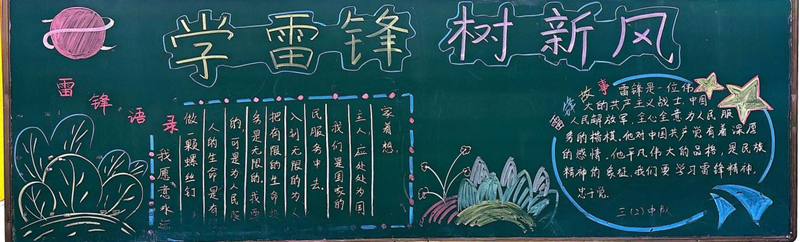 学雷锋 树新风
雷锋语录
家着想。
主人，应处处为国
我们是国家的
民服务中去。
入到无限的为人
把有限的生命
务是无限的，我要
的，可是为人民服
人的生命是有
做一颗螺丝钉
我愿意永远
雷锋故事
雷锋是一位伟
大的共产主义战士，中国
人民解放军，全心全意为人民服
务的楷模。他对中国共产党有着深厚
的感情。他平凡伟大的品格，是民族
精神的象征，我们要学习雷锋精神，
忠于党。
三(2)中队